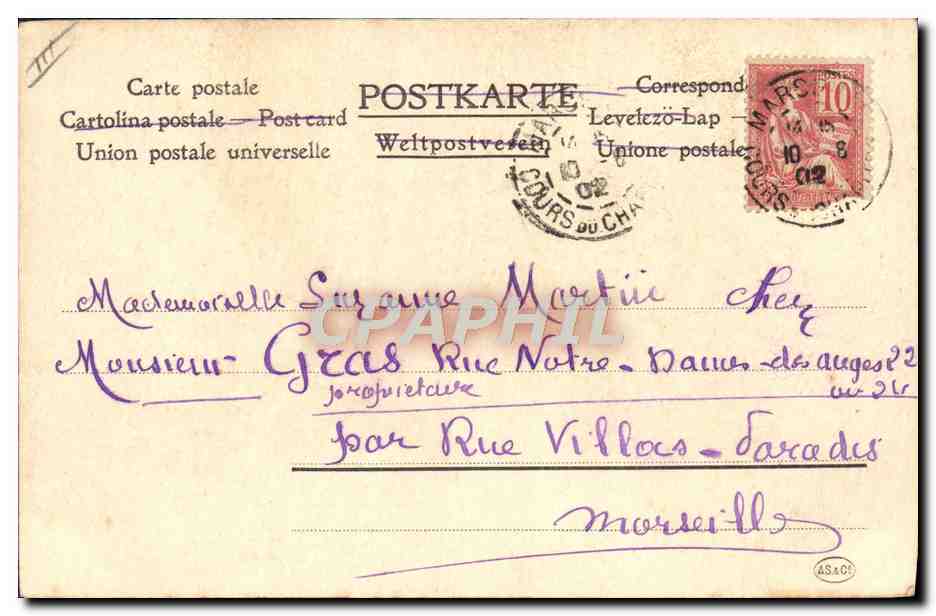 III
Carte postale
Cartolina postale — Post card
Union postale universelle
POSTKARTE
Weltpostverein
Correspond
Levelezö-Lap —
Unione postale
POSTES
10
MARS
10 8
02
COURS DU CHA
MARS
10 8
02
COURS
CPAPHIL
Mademoiselle Suzanne Martin chez
Monsieur Gras Rue Notre-Dame-des anges 22
propriétaire ou 24
par Rue Villas-Paradis
Marseille
A.S.&C!